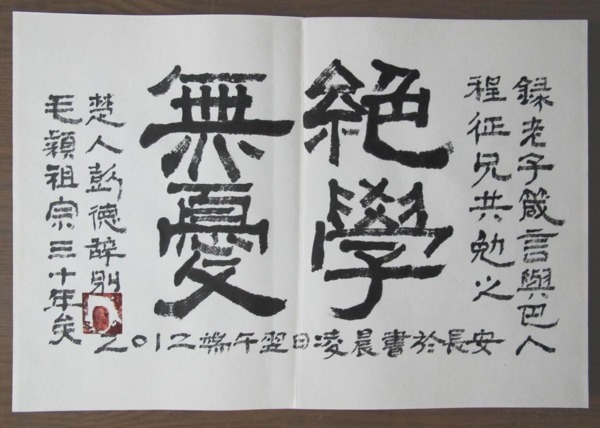 錄老子箴言與巴人
程征兄共勉之
絕學
無憂
楚人彭德辭別
毛穎祖宗三十年矣
2012端午翌日凌晨書於長安